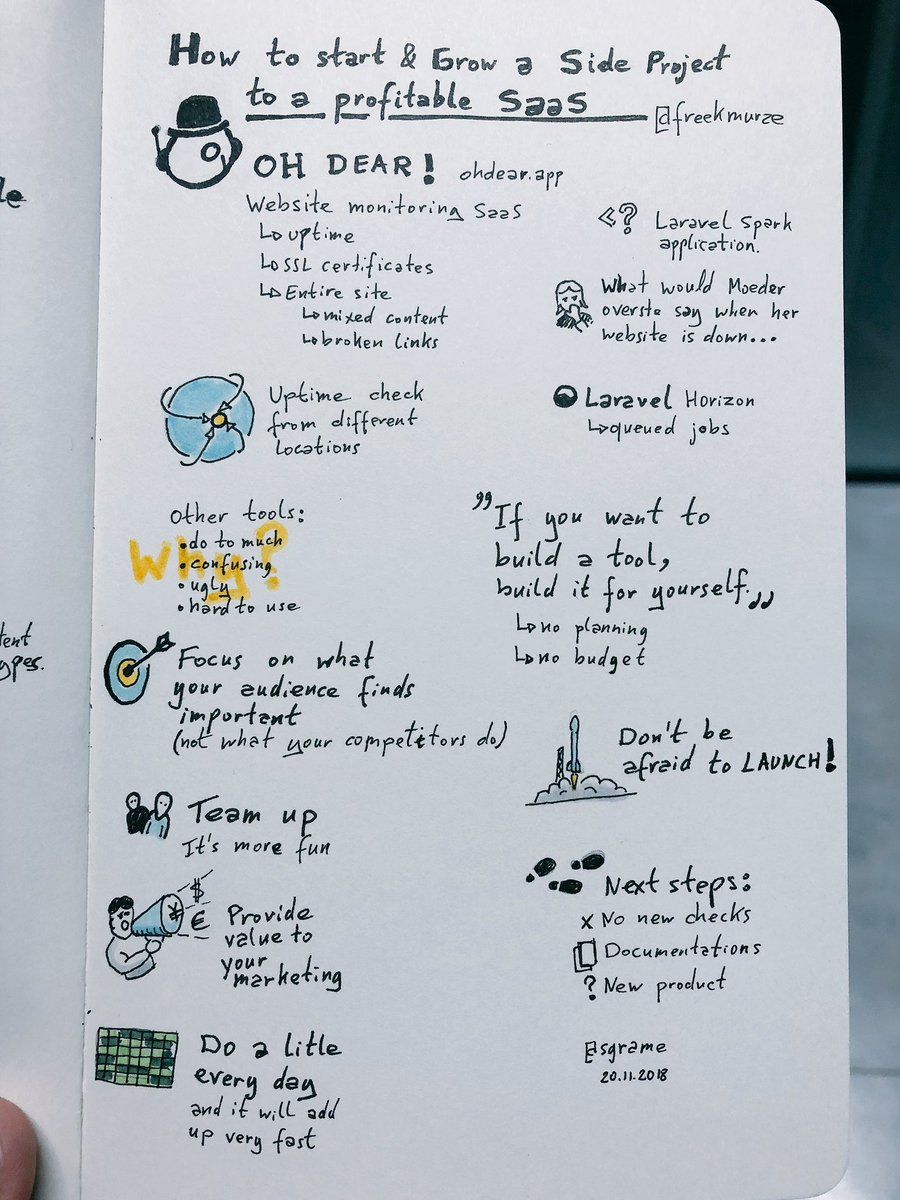 How to start & Grow a Side Project
to a profitable SaaS
@freekmurze
OH DEAR! ohdear.app
Website monitoring SaaS
↳uptime
↳SSL certificates
↳Entire site
↳mixed content
↳broken links
<? Laravel Spark
application.
What would Moeder
overste say when her
website is down...
Uptime check
from different
locations
Laravel Horizon
↳queued jobs
Why?
Other tools:
•do to much
•confusing
•ugly
•hard to use
"If you want to
build a tool,
build it for yourself.„
↳no planning
↳no budget
Focus on what
your audience finds
important
(not what your competitors do)
Don't be
afraid to LAUNCH!
Team up
It's more fun
$
¥
€
Provide
value to
your
marketing
Next steps:
x No new checks
Documentations
? New product
Do a litle
every day
and it will add
up very fast
@sgrame
20.11.2018
le
tent
ypes.